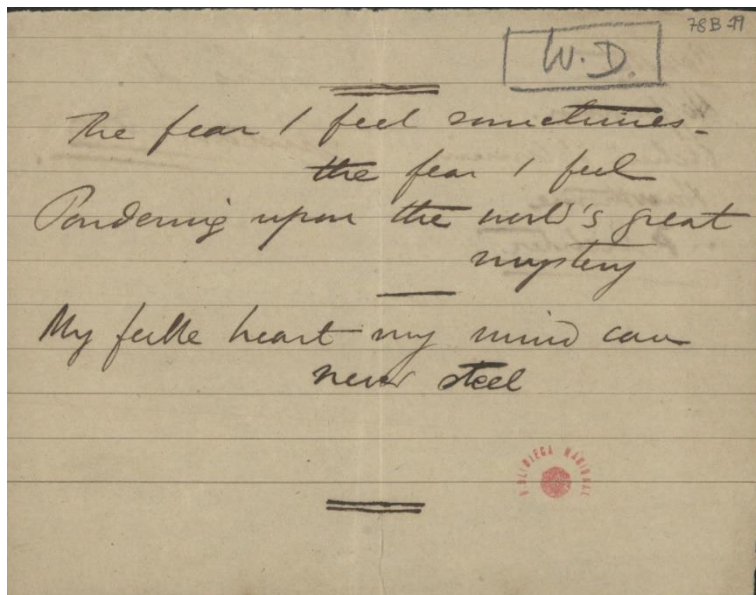 78B-29
W.D.
The fear I feel sometimes -
the fear I feel
Pondering upon the world's great
mystery
My feeble heart my mind can
never steel
BIBLIOTECA NACIONAL